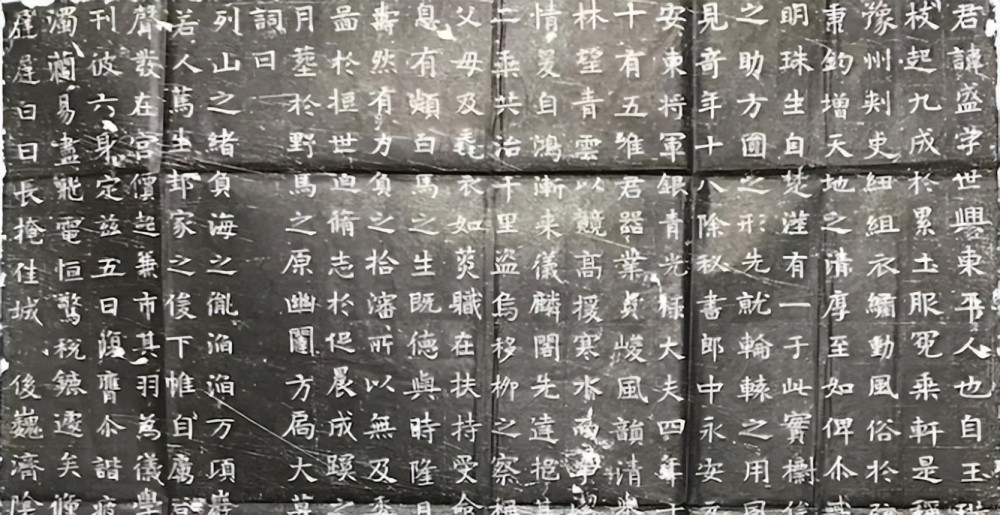 君諱盛字世興東平人也自王
枝起九成於累土服冕乘軒是
豫州刺史紐組衣繡動風俗於
秉鈞增天地之清厚至如俾尒
明珠生自楚漄有一于此實
之助方圓之形先就輪轅之用
見奇年十八除秘書郎中永安
安東将軍銀青光禄大夫四年十
十有五惟君器業貞峻風韻清
林望青雲以競高援寒水而
情爰自鴻漸来儀麟閣先達挹其
二乘共治千里盜烏移柳之察
父母及毳衣如菼職在扶持受命
息有頳白馬之生既德與時隆
然有力負之拾瀋所以無及
啚於拒世迫脩志於促晨成蹊之
月葬於野馬之原幽闥方扃大
詞曰
列山之緒負海之胤滔滔万頃
若人蔫生邦家之俊下帷自厲
聲數在宮價起兼市其羽為儀
刊彼六身定兹五日復膺尒諧
濁蘭易盡飛電恒驚税鑣遽矣
遅遅白日長掩佳城 後巍濟陰